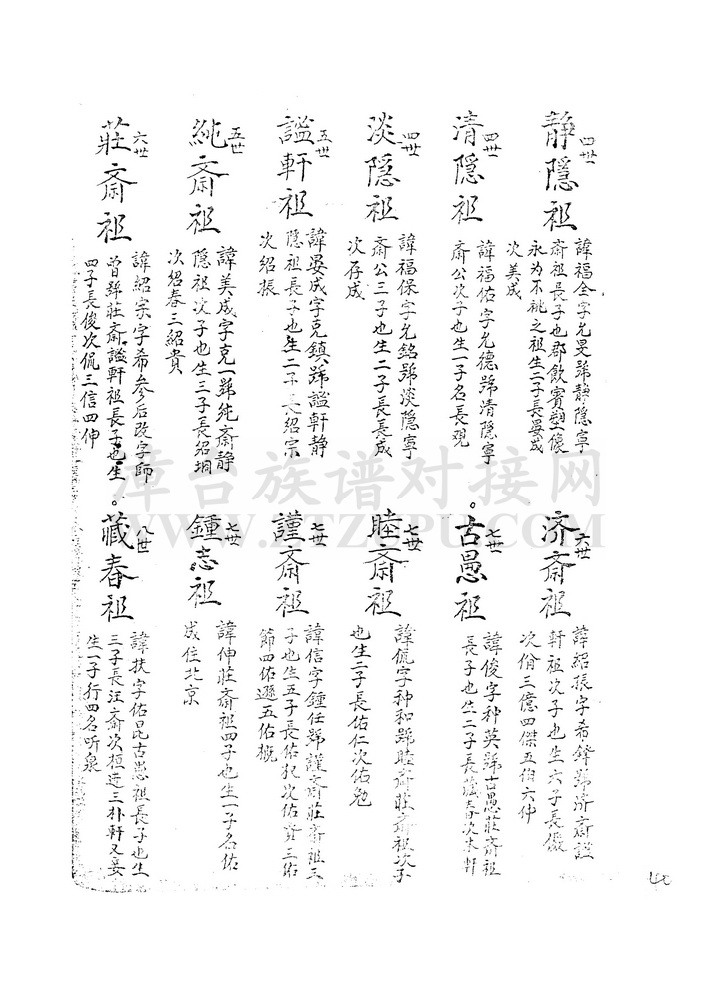 四世
静隱祖
諱福全字允旻號静隐寧
斎祖長子也郡飲賓塑一像
永为不祧之祖生二子長晏成
次美成
四世
清隠祖
諱福佑字允德號清隐寧
斎公次子也生一子名長覌
四世
淡隠祖
諱福保字允銘號淡隐寧
斎公三子也生二子長長成
次存成
五世
謐軒祖
諱晏成字克鎮號謐軒静
隐祖長子也生二子長紹宗
次紹振
五世
純斎祖
諱美成字克一號純斎静
隐祖次子也生三子長紹垌
次紹春三紹貴
六世
莊斎祖
諱紹宗字希参后改字師
曾號莊斎謐軒祖長子也生
四子長俊次侃三信四伸
六世
济斎祖
諱紹振字希鋒號济斎謐
軒祖次子也生六子長儼
次脩三億四傑五伯六仲
七世
古愚祖
諱俊字种英號古愚莊斎祖
長子也生二子長蔵春次朱軒
七世
睦斎祖
諱侃字种和號睦斎莊斎祖次子
也生二子長佑仁次佑勉
七世
謹斎祖
諱信字鍾任號謹斎莊斎祖三
子也生五子長佑犯次佑賢三佑
節四佑遜五佑概
七世
鍾志祖
諱伸莊斎祖四子也生一子名佑
成住北京
八世
藏春祖
諱扶字佑昆古愚祖長子也生
三子長汪斎次桓近三朴軒又妾
生一子行四名听泉
漳台族谱对接网
WWW.ZTZUPU.COM